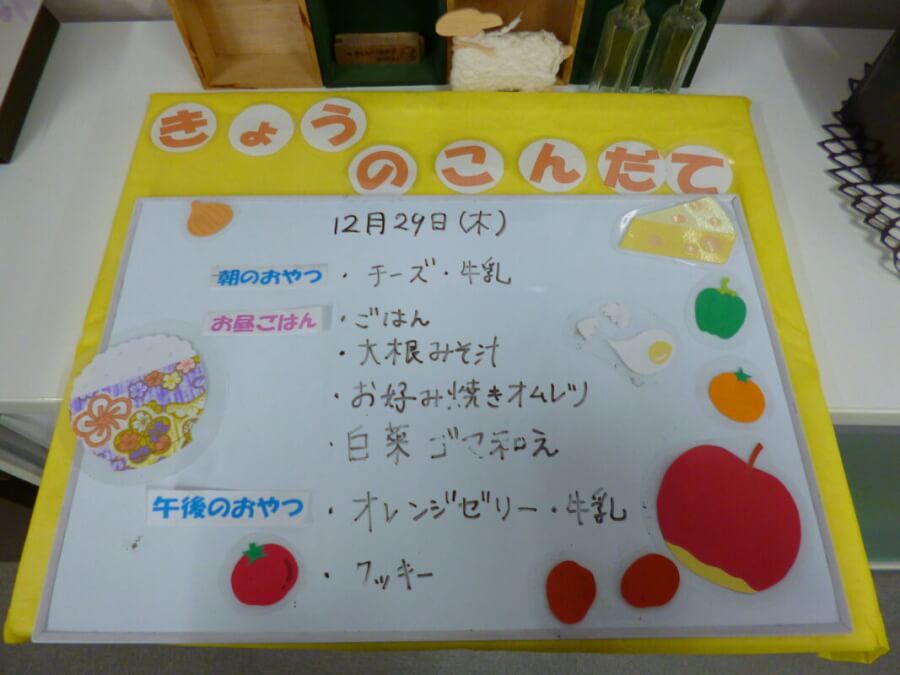 きょう
のこんだて
12月29日(木)
朝のおやつ ・チーズ・牛乳
お昼ごはん ・ごはん
・大根みそ汁
・お好み焼きオムレツ
・白菜 ゴマ和え
午後のおやつ ・オレンジゼリー・牛乳
・クッキー